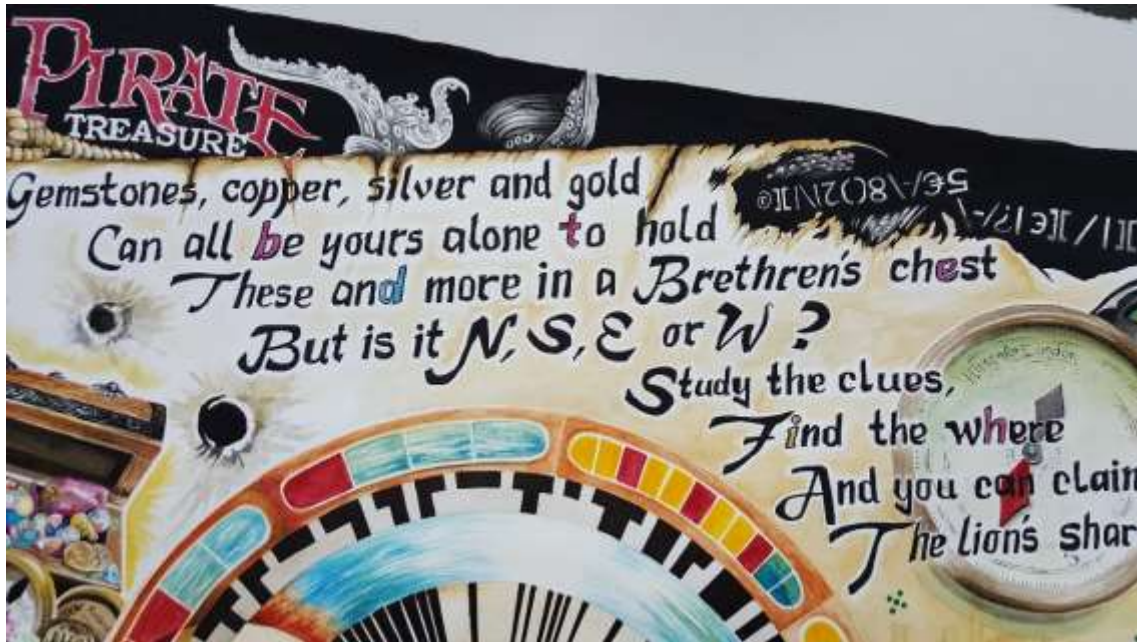 PIRATE
TREASURE
Gemstones, copper, silver and gold
Can all be yours alone to hold
These and more in a Brethren's chest
But is it N, S, E or W?
Study the clues,
Find the where
And you can claim
The lion's shar